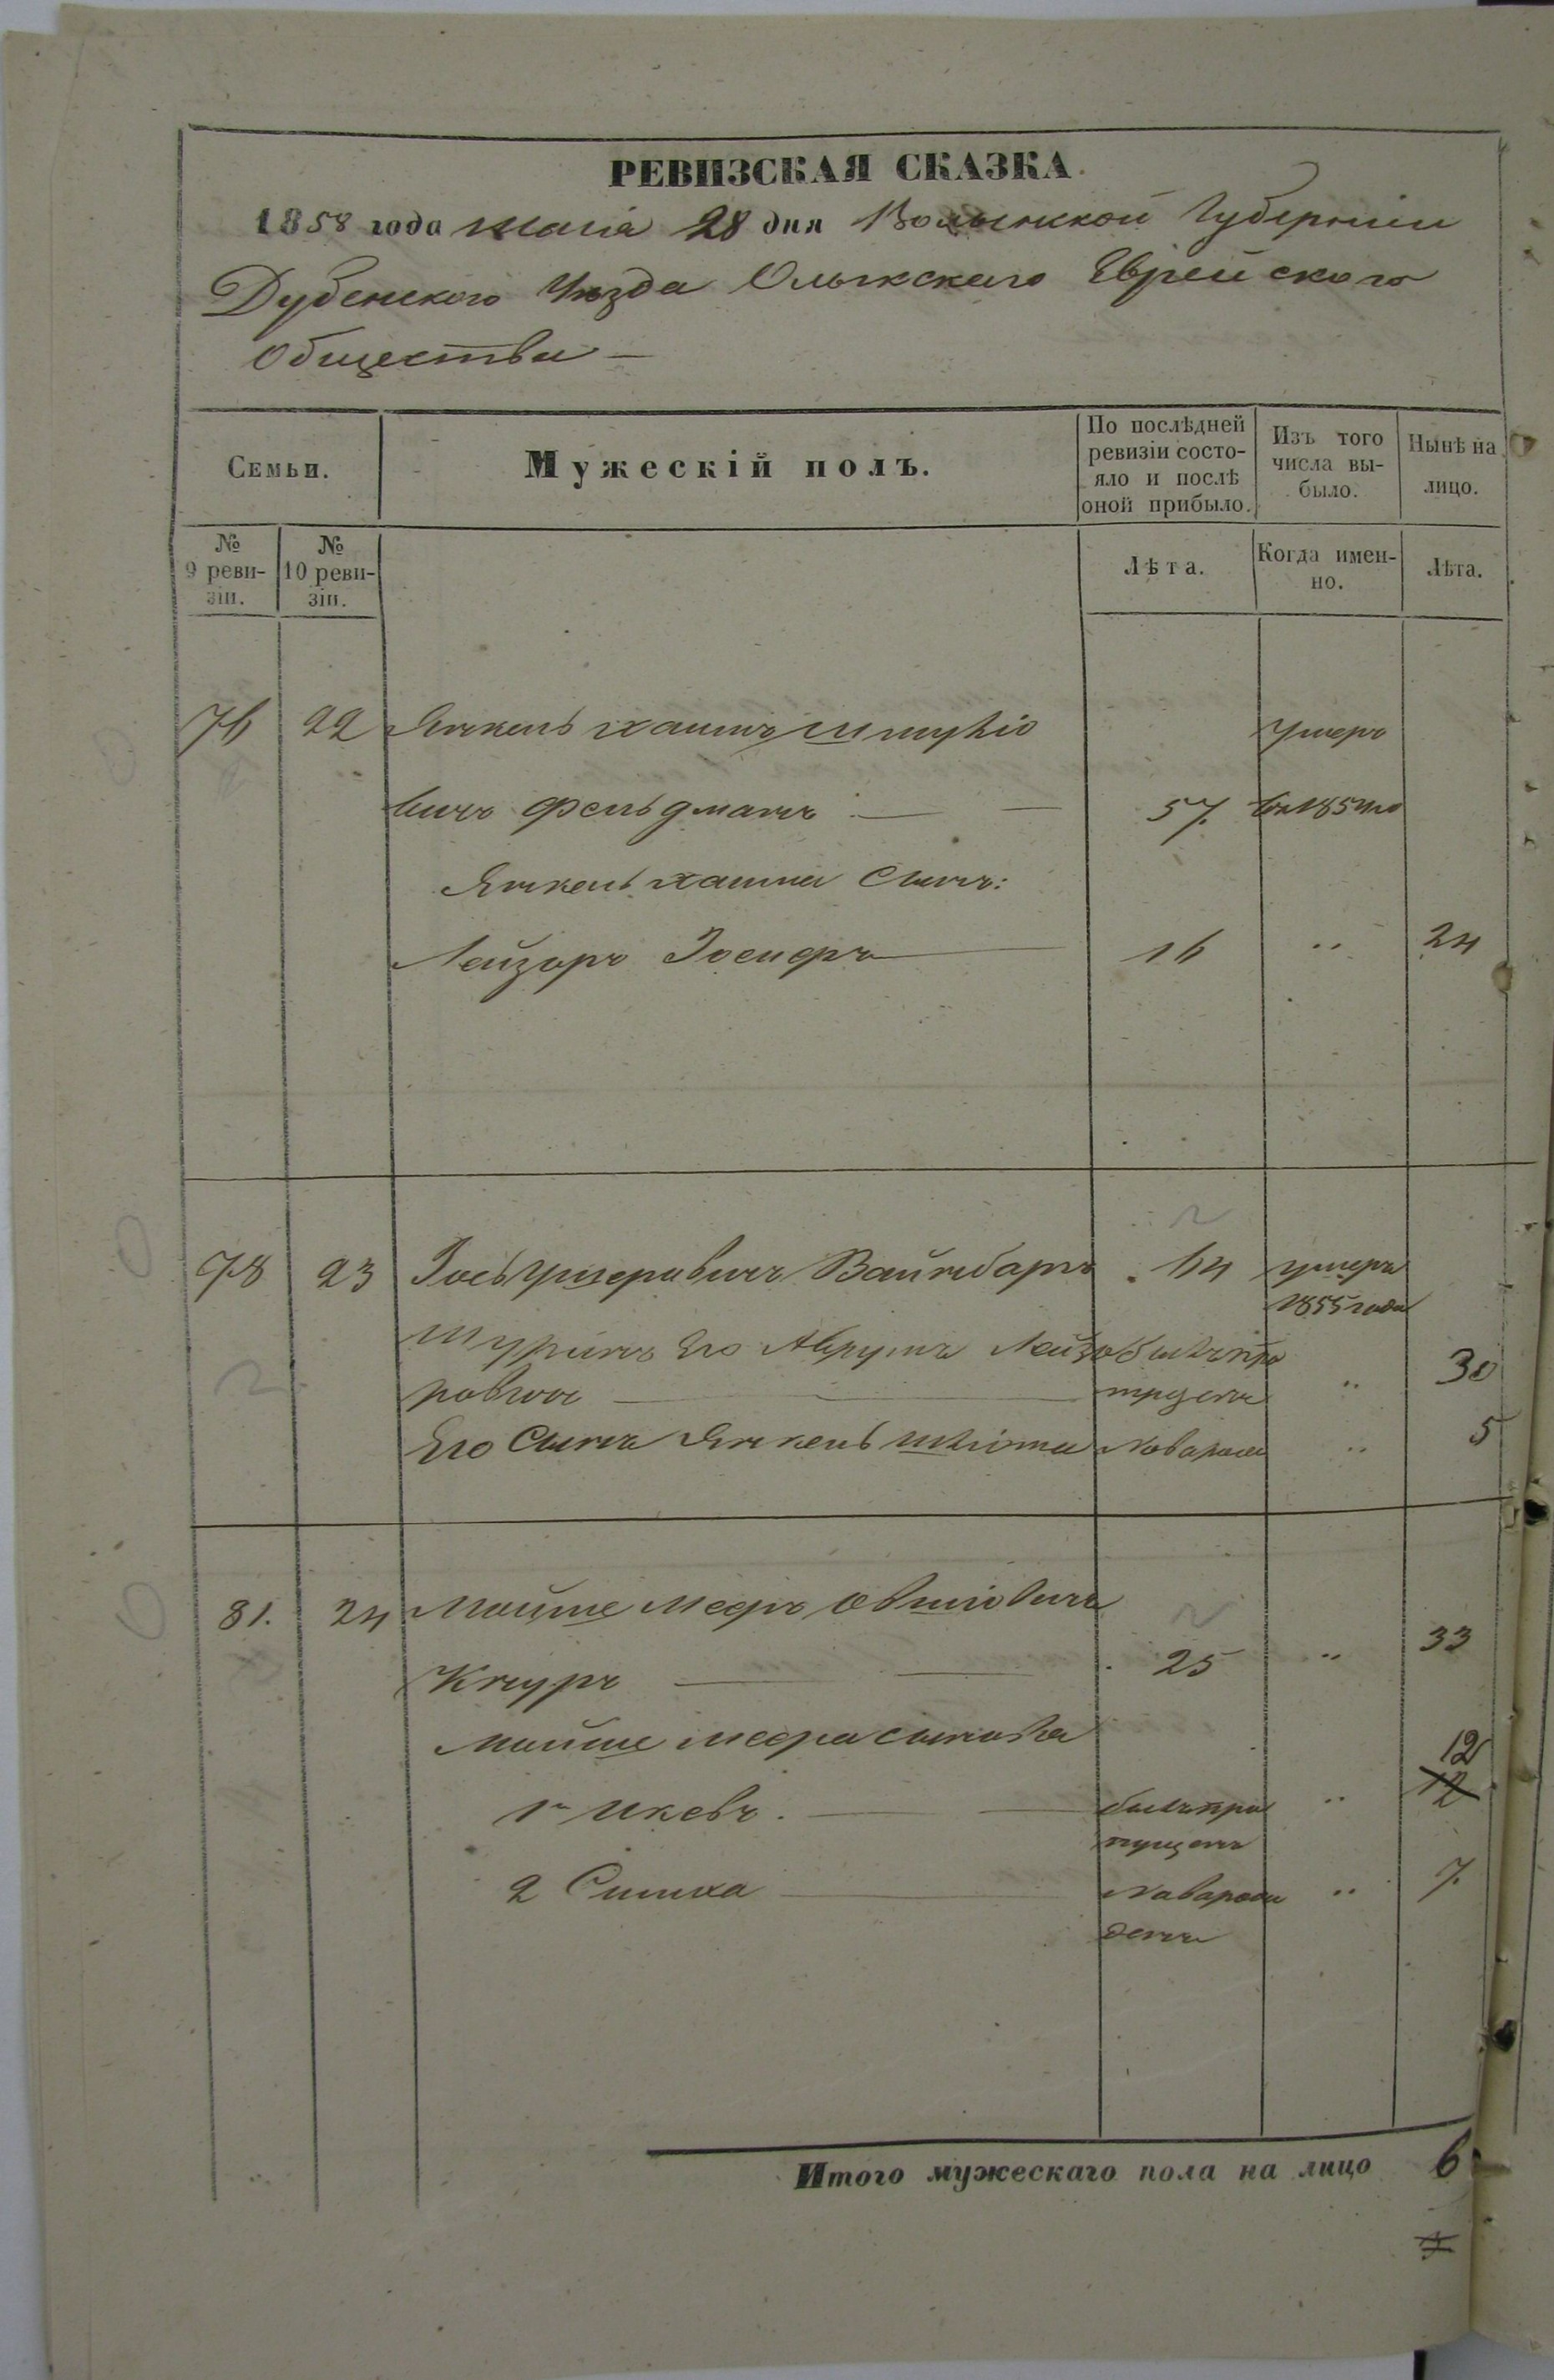 РЕВИЗСКАЯ СКАЗКА.
1858 года Маія 28 дня Волынской Губерніи
Дубенского Уѣзда Олыкскаго Еврейского
Общества —
Семьи.
Мужескій полъ.
По послѣдней ревизіи состояло и послѣ оной прибыло.
Изъ того числа выбыло.
Нынѣ на лицо.
№ 9 ревизіи.
№ 10 ревизіи.
Лѣта.
Когда именно.
Лѣта.
76 22 Янкель Хаимъ Шмулio умеръ
вичъ Фельдманъ — 57. въ 1854мъ
Янкель Хаима Сынъ:
Лейзоръ Iосифъ — 16 " 24
78 23 Iось Ушеровичъ Вайнбаргъ 64 умеръ
1855 года
Шуринъ Его Аврумъ Лейзо былъ про
ровичъ — " 30
Его Сынъ Янкель новорож " 5
81. 24 Мойше Мееръ Овшiовичъ
Кнуръ — 25 " 33
Мойше Меера сыновья
12
1й Икевъ. — былъ про " 12
пущенъ
2 Симха — новорож " 7.
денъ
Итого мужескаго пола на лицо 6
7